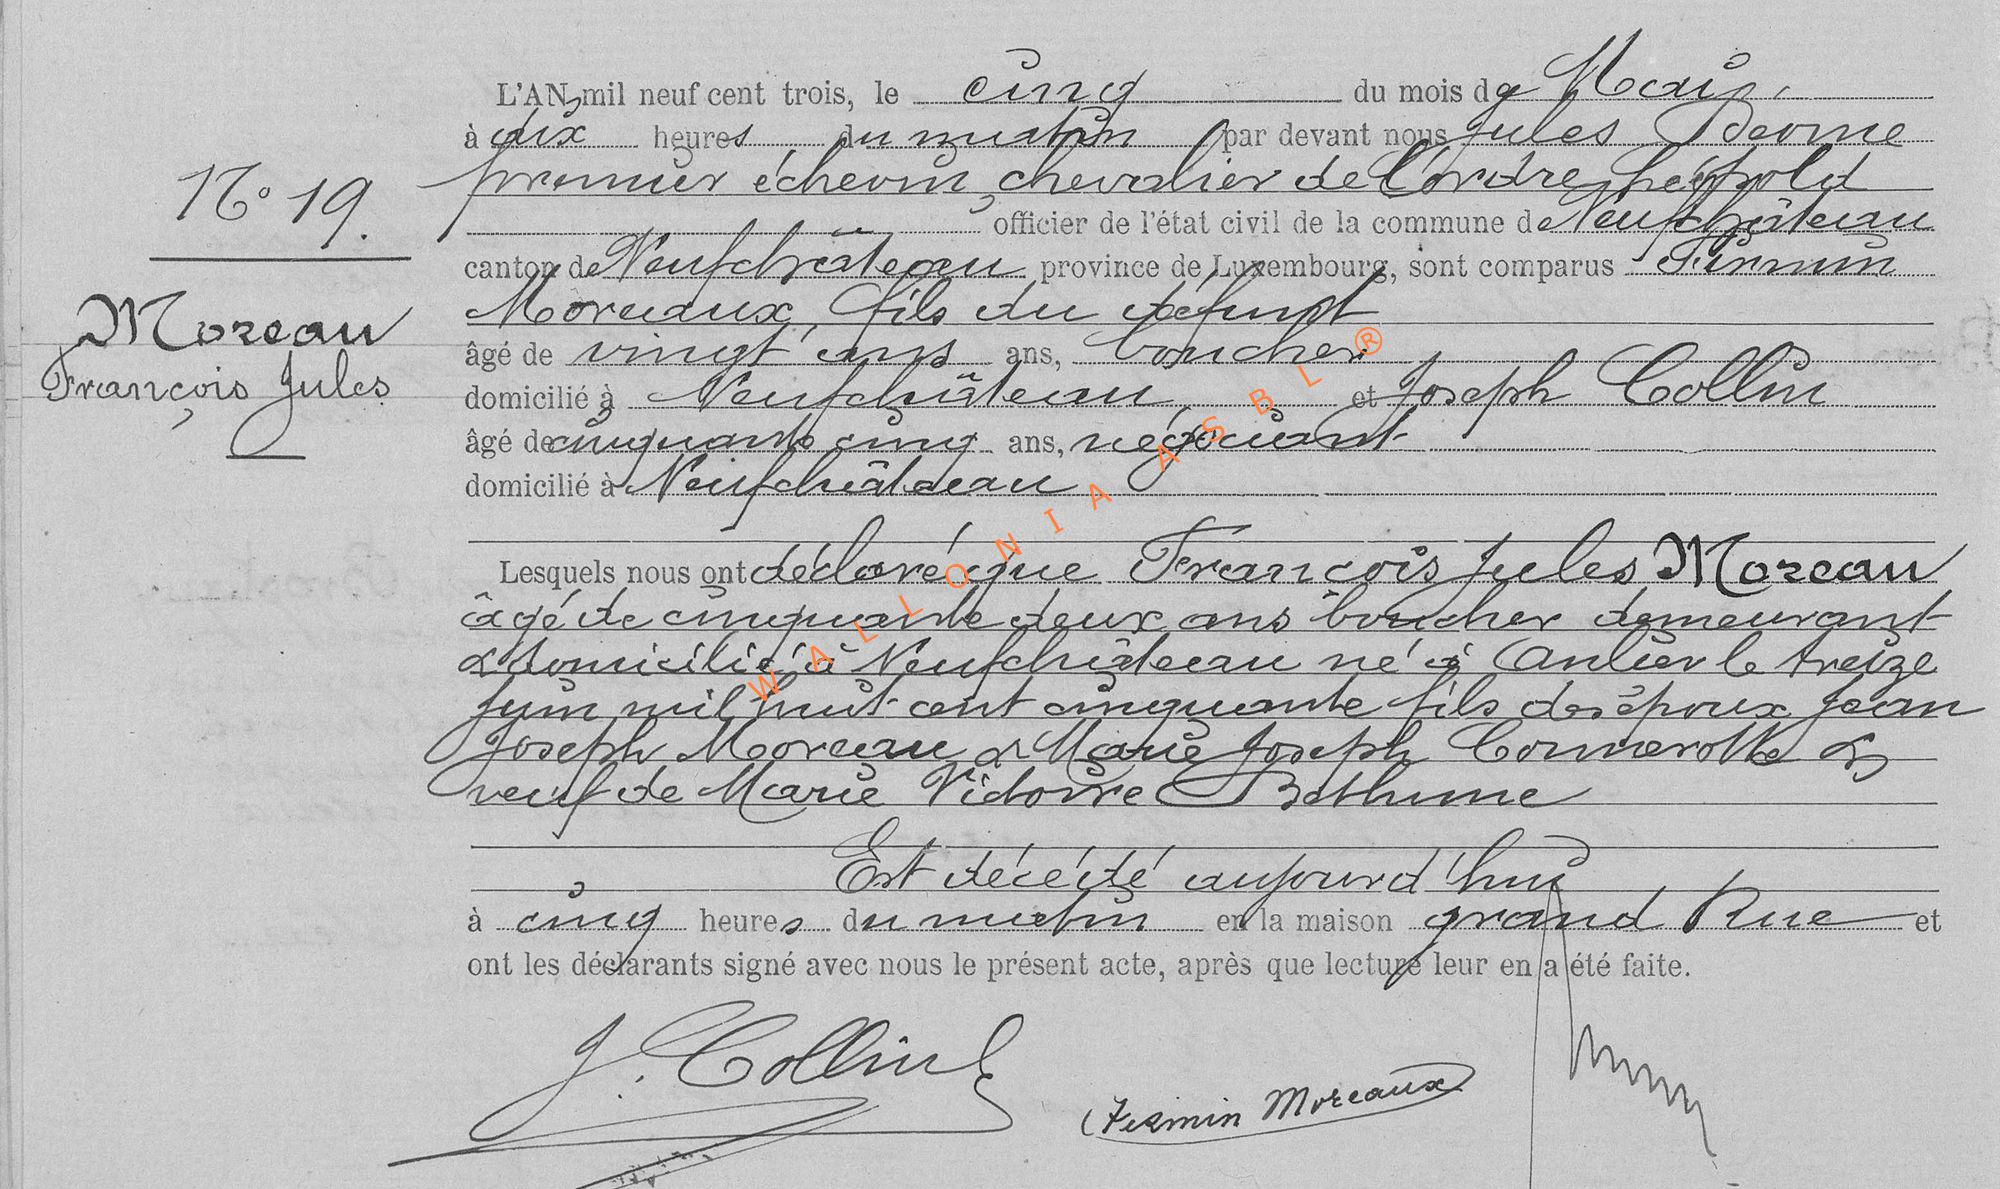 L'AN mil neuf cent trois, le cinq du mois de Mai,
à dix heures du matin par devant nous Jules
premier échevin, chevalier de l'ordre Léopold
officier de l'état civil de la commune de Neufchâteau
canton de Neufchâteau province de Luxembourg, sont comparus Firmin
Moreaux, fils du défunt
âgé de vingt ans ans, boucher
domicilié à Neufchâteau et Joseph Collin
âgé de cinquante cinq ans, négociant
domicilié à Neufchâteau
N° 19.
Moreau
François Jules
Lesquels nous ont déclaré que François Jules Moreau
âgé de cinquante deux ans boucher demeurant
& domicilié à Neufchâteau né à Anlier le treize
juin mil huit cent cinquante fils des époux Jean
Joseph Moreau & Marie Joseph &
veuf de Marie Victoire Bethume
Est décédé aujourd'hui
à cinq heures du matin en la maison grand Rue et
ont les déclarants signé avec nous le présent acte, après que lecture leur en a été faite.
J. Collin
Firmin Moreaux
WALLONIA ASBL ®